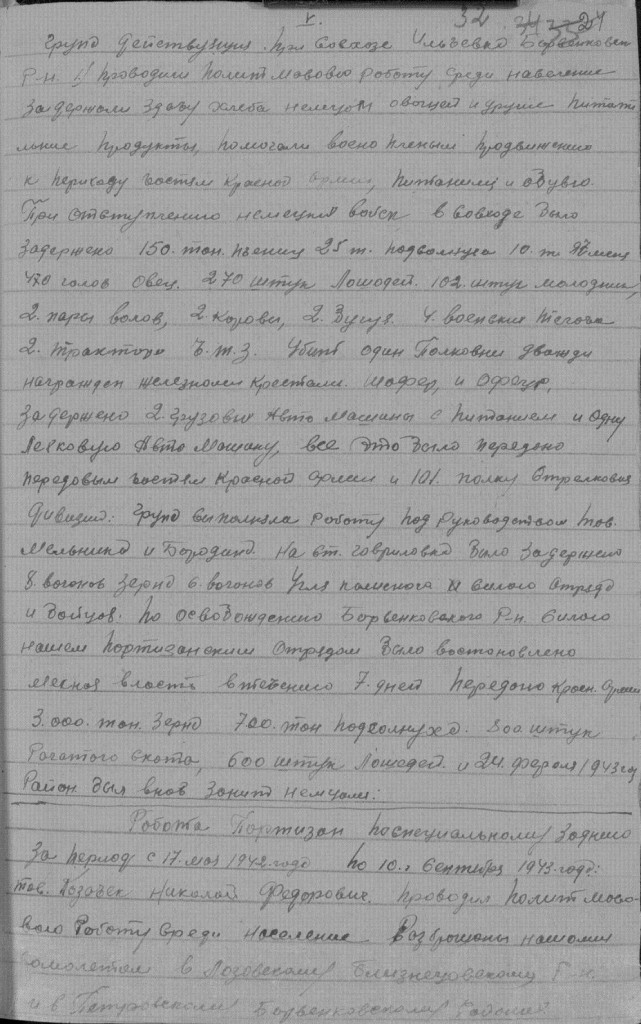 V. 32
Груп действующия при Совхозе Ильчевка Барвенковск
Р-н. проводили Полит Мовово Роботу Среди население
Задержали здачу хлеба немцам овощей и другие Питате
льние Продукты, помогали воено пленым продвижению
к переходу частям Красной Армии, питанием и обувю.
При отступлению немецких войск в Совхозе было
задержено 150. тон. пшениц 25 т. подсолнуха 10. т. ячмень
470 голов овец. 270 штук Лошодей. 102. штук молодник,
2. пары волов, 2 Коровы, 2. 4. воепские
2. Трактори Ч. Т. З. Убит один Полковник дважди
награжден железноми Крестами. шофер, и Офецер,
Задержено 2. грузовых Авто Машины с питанием и одну
Легковую Авто Машину, все это было передано
передовым частям Красной армии и 101. полку Стрелковой
Дивизии. Груп выполняла роботу под руководством тов.
Мельника и Бородина. На ст. Гавриловка было задержено
8. вогонов Зерна 6. вогонов Угля силого Отряда
и бойцов. По освобождению Барвенковского Р-н. Силого
нашем Портизанским Отрядом было востоновлено
месная власть втечению 7. дней передано Красн. Арми
3.000. тон. Зерна 700. тон подсолнуха. 800 штук
Рогатого скота, 600 штук Лошодей. и 24. февроля 1943 год
Район был внов занят немцами:
Робота Портизан поспециальному заднию
За период с 17. мая 1942. годо по 10. Сентября 1943. годо:
тов. Козовек Николай Федорович. проводил полит мово-
вою Роботу Среди население. нашоми
самолетом в Лозовском Близнецовском Р-н.
и в Петровском Барвенковском Районах